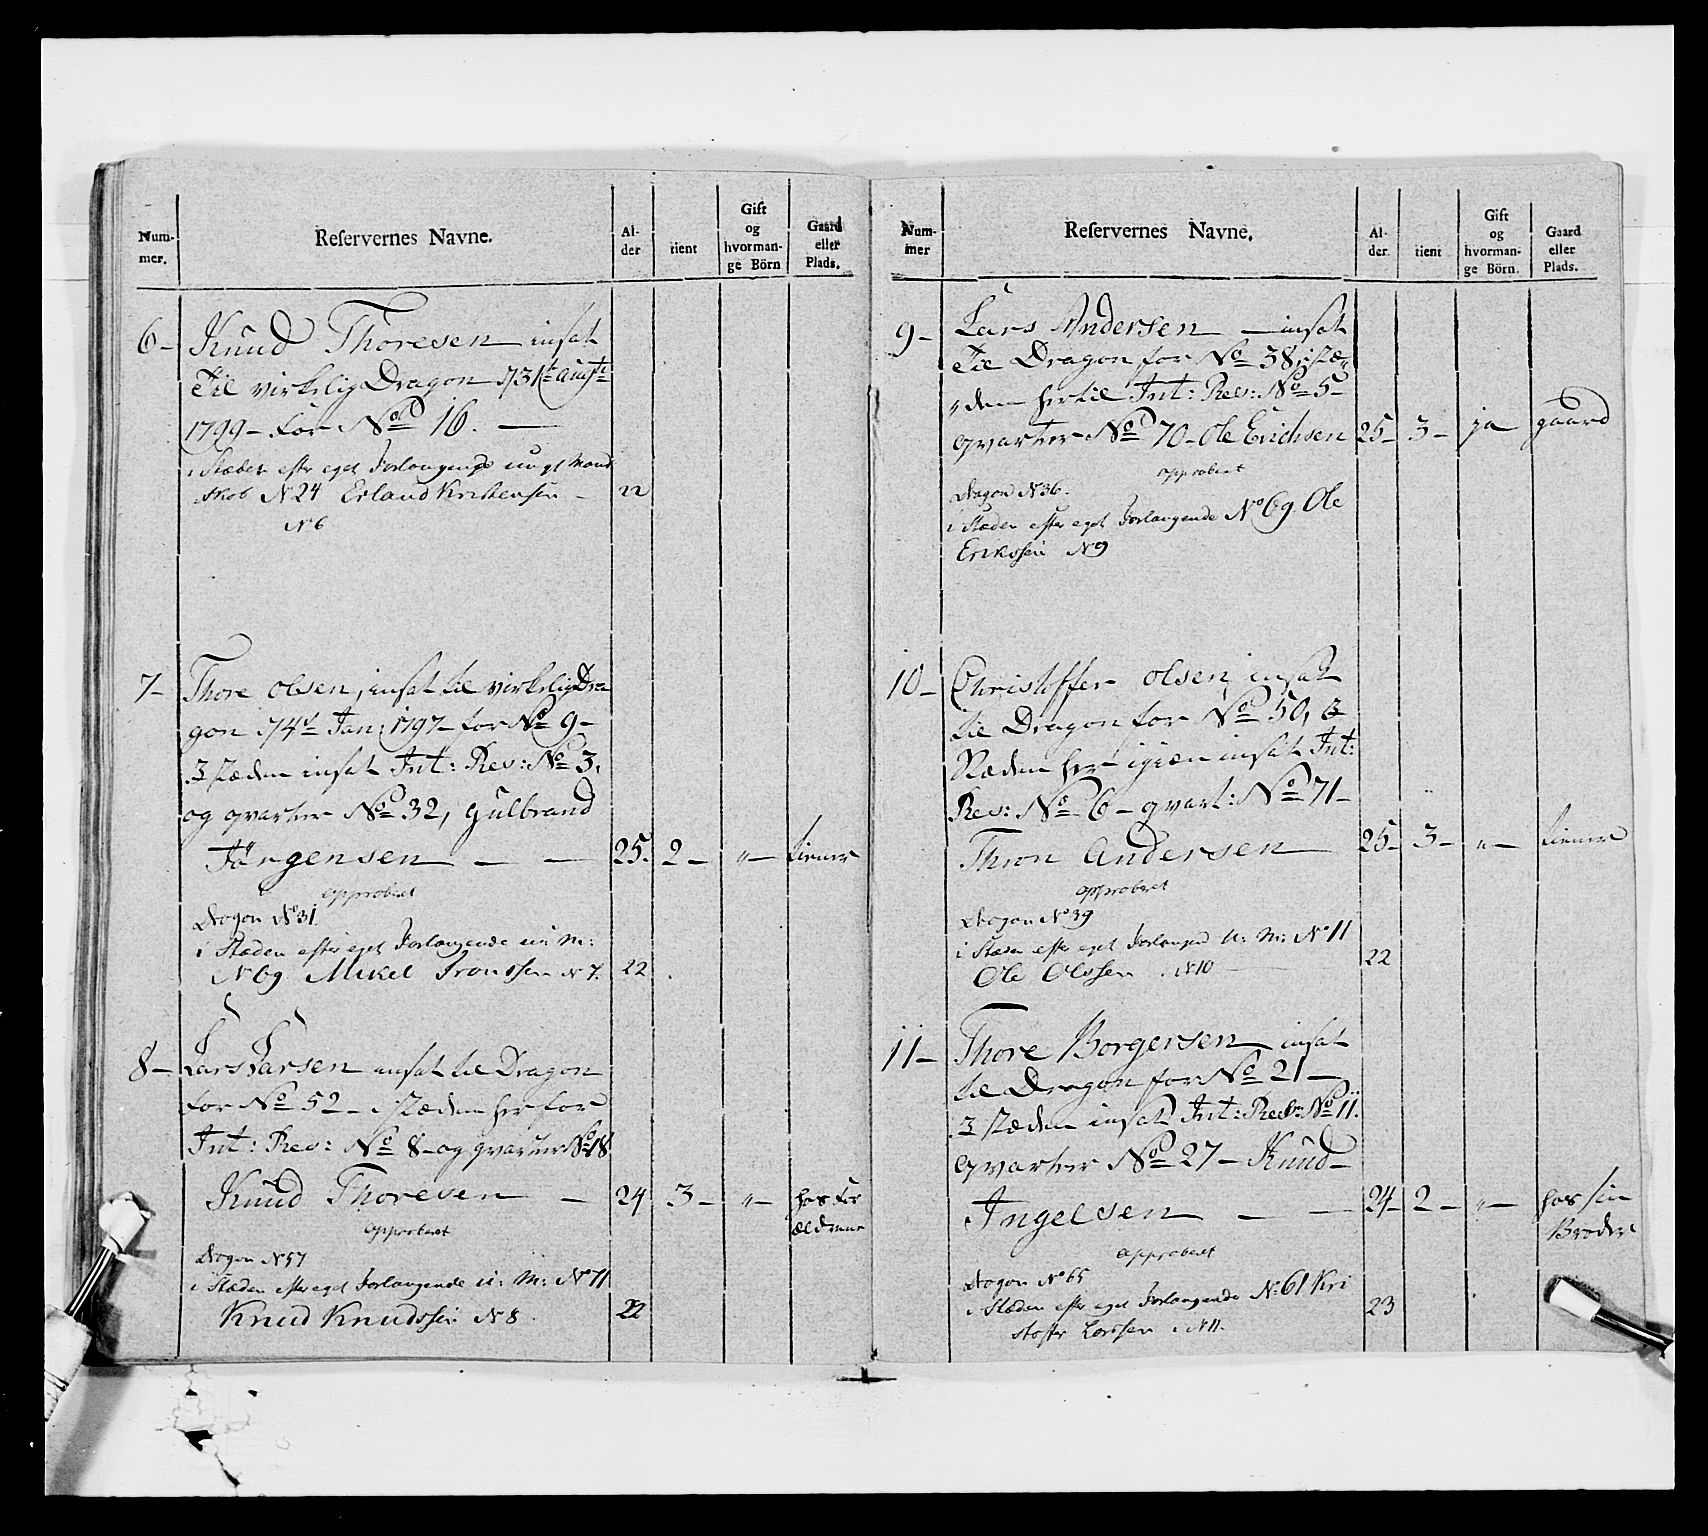 Num-
mer.
Reservernes Navne.
Al-
der
tient
Gift
og
hvorman-
ge Börn
Gaard
eller
Plads.
6 - Knud Thoresen insat
Til virkelig Dragon 31t Augti
1799 - for No 16. -
i Stæden efter eget Forlangende ungt Mand
skab N 24 Erland Kristensen - 22
N 6
7 - Thore Olsen, insat til virkelig Dra
gon 4t Jan: 1797 - for No 9 -
I stæden insat Int: Res: No 3.
og qvarter No 32, Gulbrand
Jörgensen - - 25. 2 - " - tiener
approberet
Dragon No 31
i Stæden efter eget Forlangende un: M:
N 69 Mikel Tronssen N 7. 22
8 - Lars Larsen insat til Dragon
for No 52 - i stæden her for
Int: Res: No 8 - og qvarter No 18
Knud Thoresen - 24 3 - " - hos For
ældrene
Approberet
Dragon N 57
i Stæden efter eget Forlangende u: M: No 71
Knud Knudssen N 8. 22
Num-
mer
Reservernes Navne.
Al-
der.
tient
Gift
og
hvorman-
ge Börn.
Gaard
eller
Plads.
9 - Lars Andersen - insat
Til Dragon for No 38, i stæ-
den hertil Int: Res: No 5 -
qvarter No 70 - Ole Erichsen 25 - 3 - ja gaard
approberet
Dragon N 36.
i Stæden efter eget Forlangende No 69 Ole
Erikssen N 9
10 - Christoffer Olsen, insat
til Dragon for No 50, I
Stæden her igien insat Int:
Res: No 6 - qvart: No 71 -
Thron Andersen 25 - 3 - " - tiener
approberet
Dragon No 39
i Stæden efter eget Forlangend U: M: No 11
Ole Olssen. N 10 22
11 - Thore Borgersen insat
til Dragon for No 21 -
I stæden insat Int: Res: No 11.
qvarter No 27 - Knud -
Ingelsen - - 24 - 2 - " - hos sin
Broder
approberet
Dragon No 65
i Stæden efter eget Forlangende N: 61 Kri
stoffer Larssen. N 11. 23